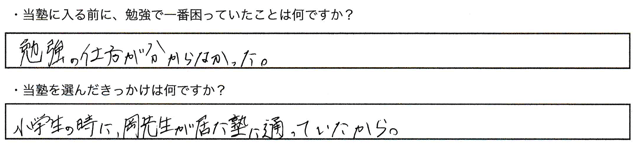 ・当塾に入る前に、勉強で一番困っていたことは何ですか？
勉強の仕方が分からなかった。
・当塾を選んだきっかけは何ですか？
小学生の時に、岡先生が居た塾に通っていたから。